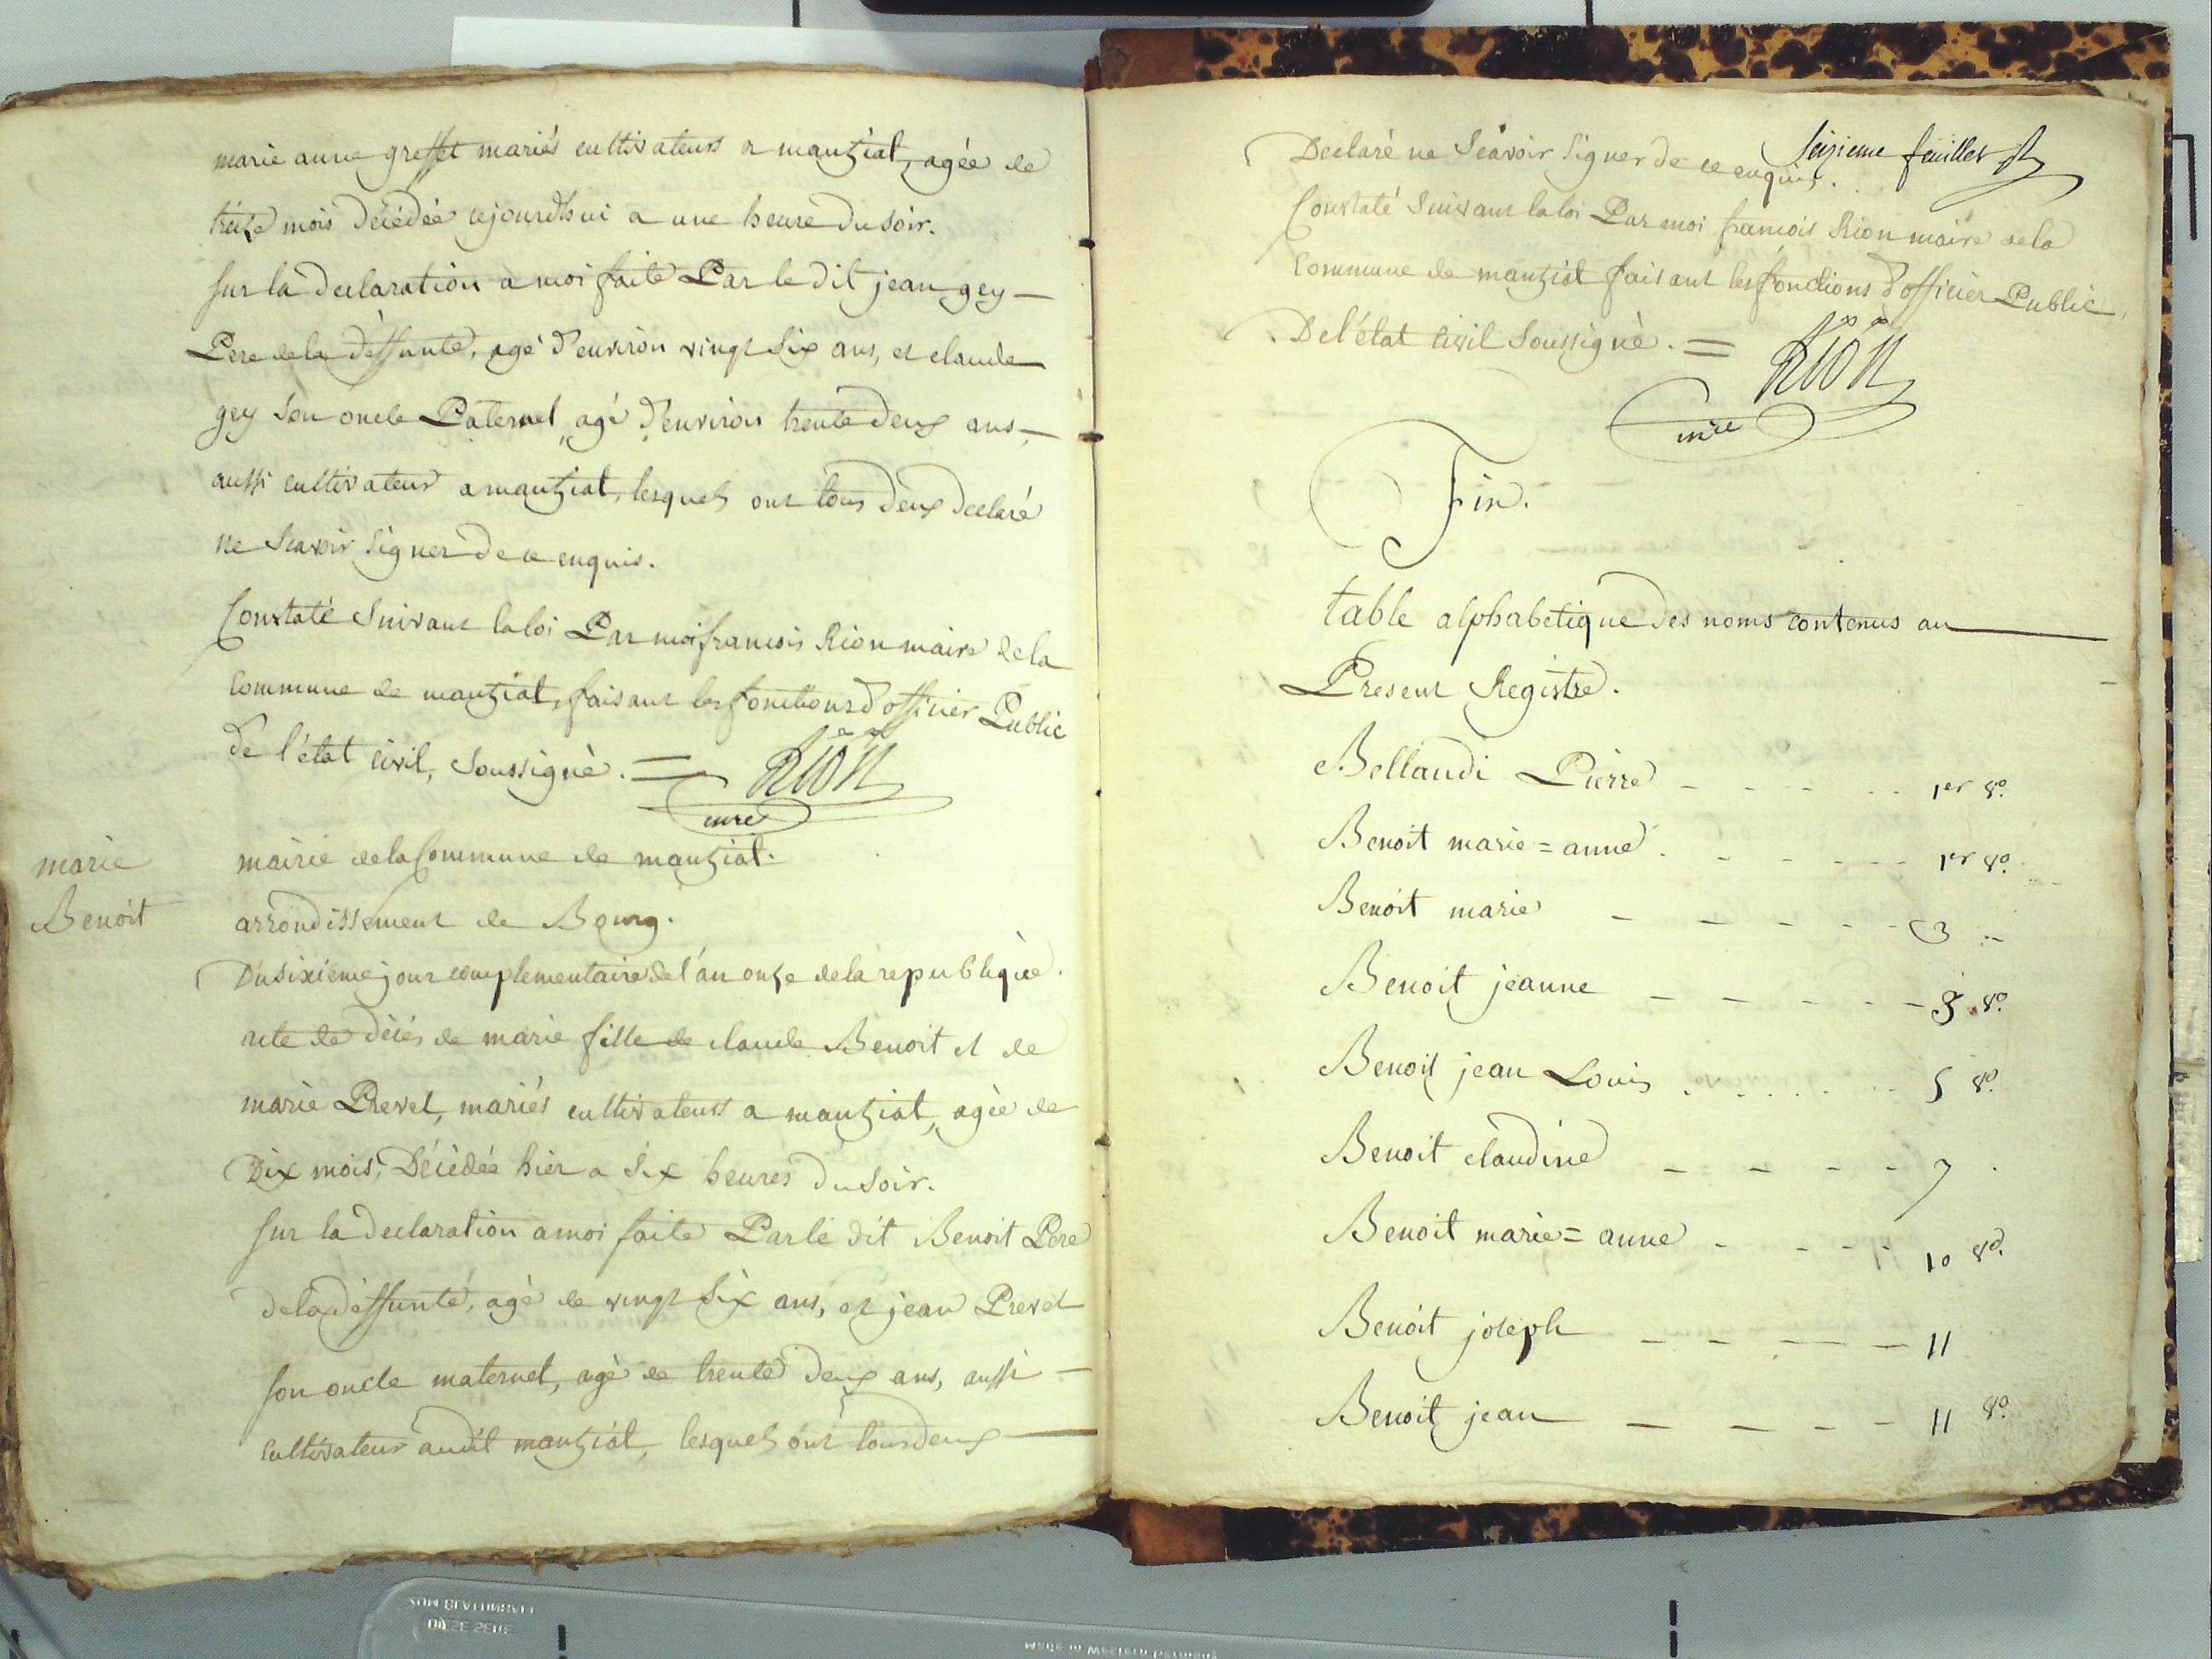 marie anne greffet mariés cultivateurs a mantziat, agée de
treize mois décédée cejourdhui a une heure du soir.
sur la declaration a moi faite Par le dit jean gey —
Pere de la deffunte, agé d'environ vingt six ans, et claude
gey son oncle Paternel, agé d'environ trente deux ans —
aussi cultivateur a mantziat, lesquels ont tous deux declaré
ne Scavoir signer de ce enquis.
Constaté Suivant la loi Par moi francois Rion maire de la
commune de mantziat, faisant les fonctions d'officier Public
de l'état civil, soussigné. = Rion
mre
marie
Benoit
mairie de la Commune de mantziat.
arrondissement de Bourg.
Du sixiéme jour complementaire de l'an onze de la republique.
acte de décés de marie fille de claude Benoit et de
marie Prevel, mariés cultivateurs a mantziat, agée de
Dix mois, Décédée hier a Six heures du soir.
sur la declaration a moi faite Par le dit Benoit Pere
de la deffunte, agé de vingt six ans, et jean Prevel
son oncle maternel, agé de trente deux ans, aussi —
cultivateur audit mantziat, lesquels ont tous deux —
seizieme feuillet
Declaré ne Scavoir signer de ce enquis.
Constaté Suivant la loi Par moi francois Rion maire de la
Commune de mantziat faisant les fonctions d'officier Public
De l'état civil soussigné. = Rion
mre
Fin.
table alphabetique des noms contenus au
Present Registre.
Bellaudi Pierre - - - - 1er vo.
Benoit marie = anne - - - - 1er vo.
Benoit marie - - - - - 3
Benoit jeanne - - - - - 3 vo.
Benoit jean Louis . . . . . 5 vo.
Benoit claudine - - - - 7
Benoit marie = anne - - - - 10 vo.
Benoit joseph - - - - 11
Benoit jean - - - - 11 vo.